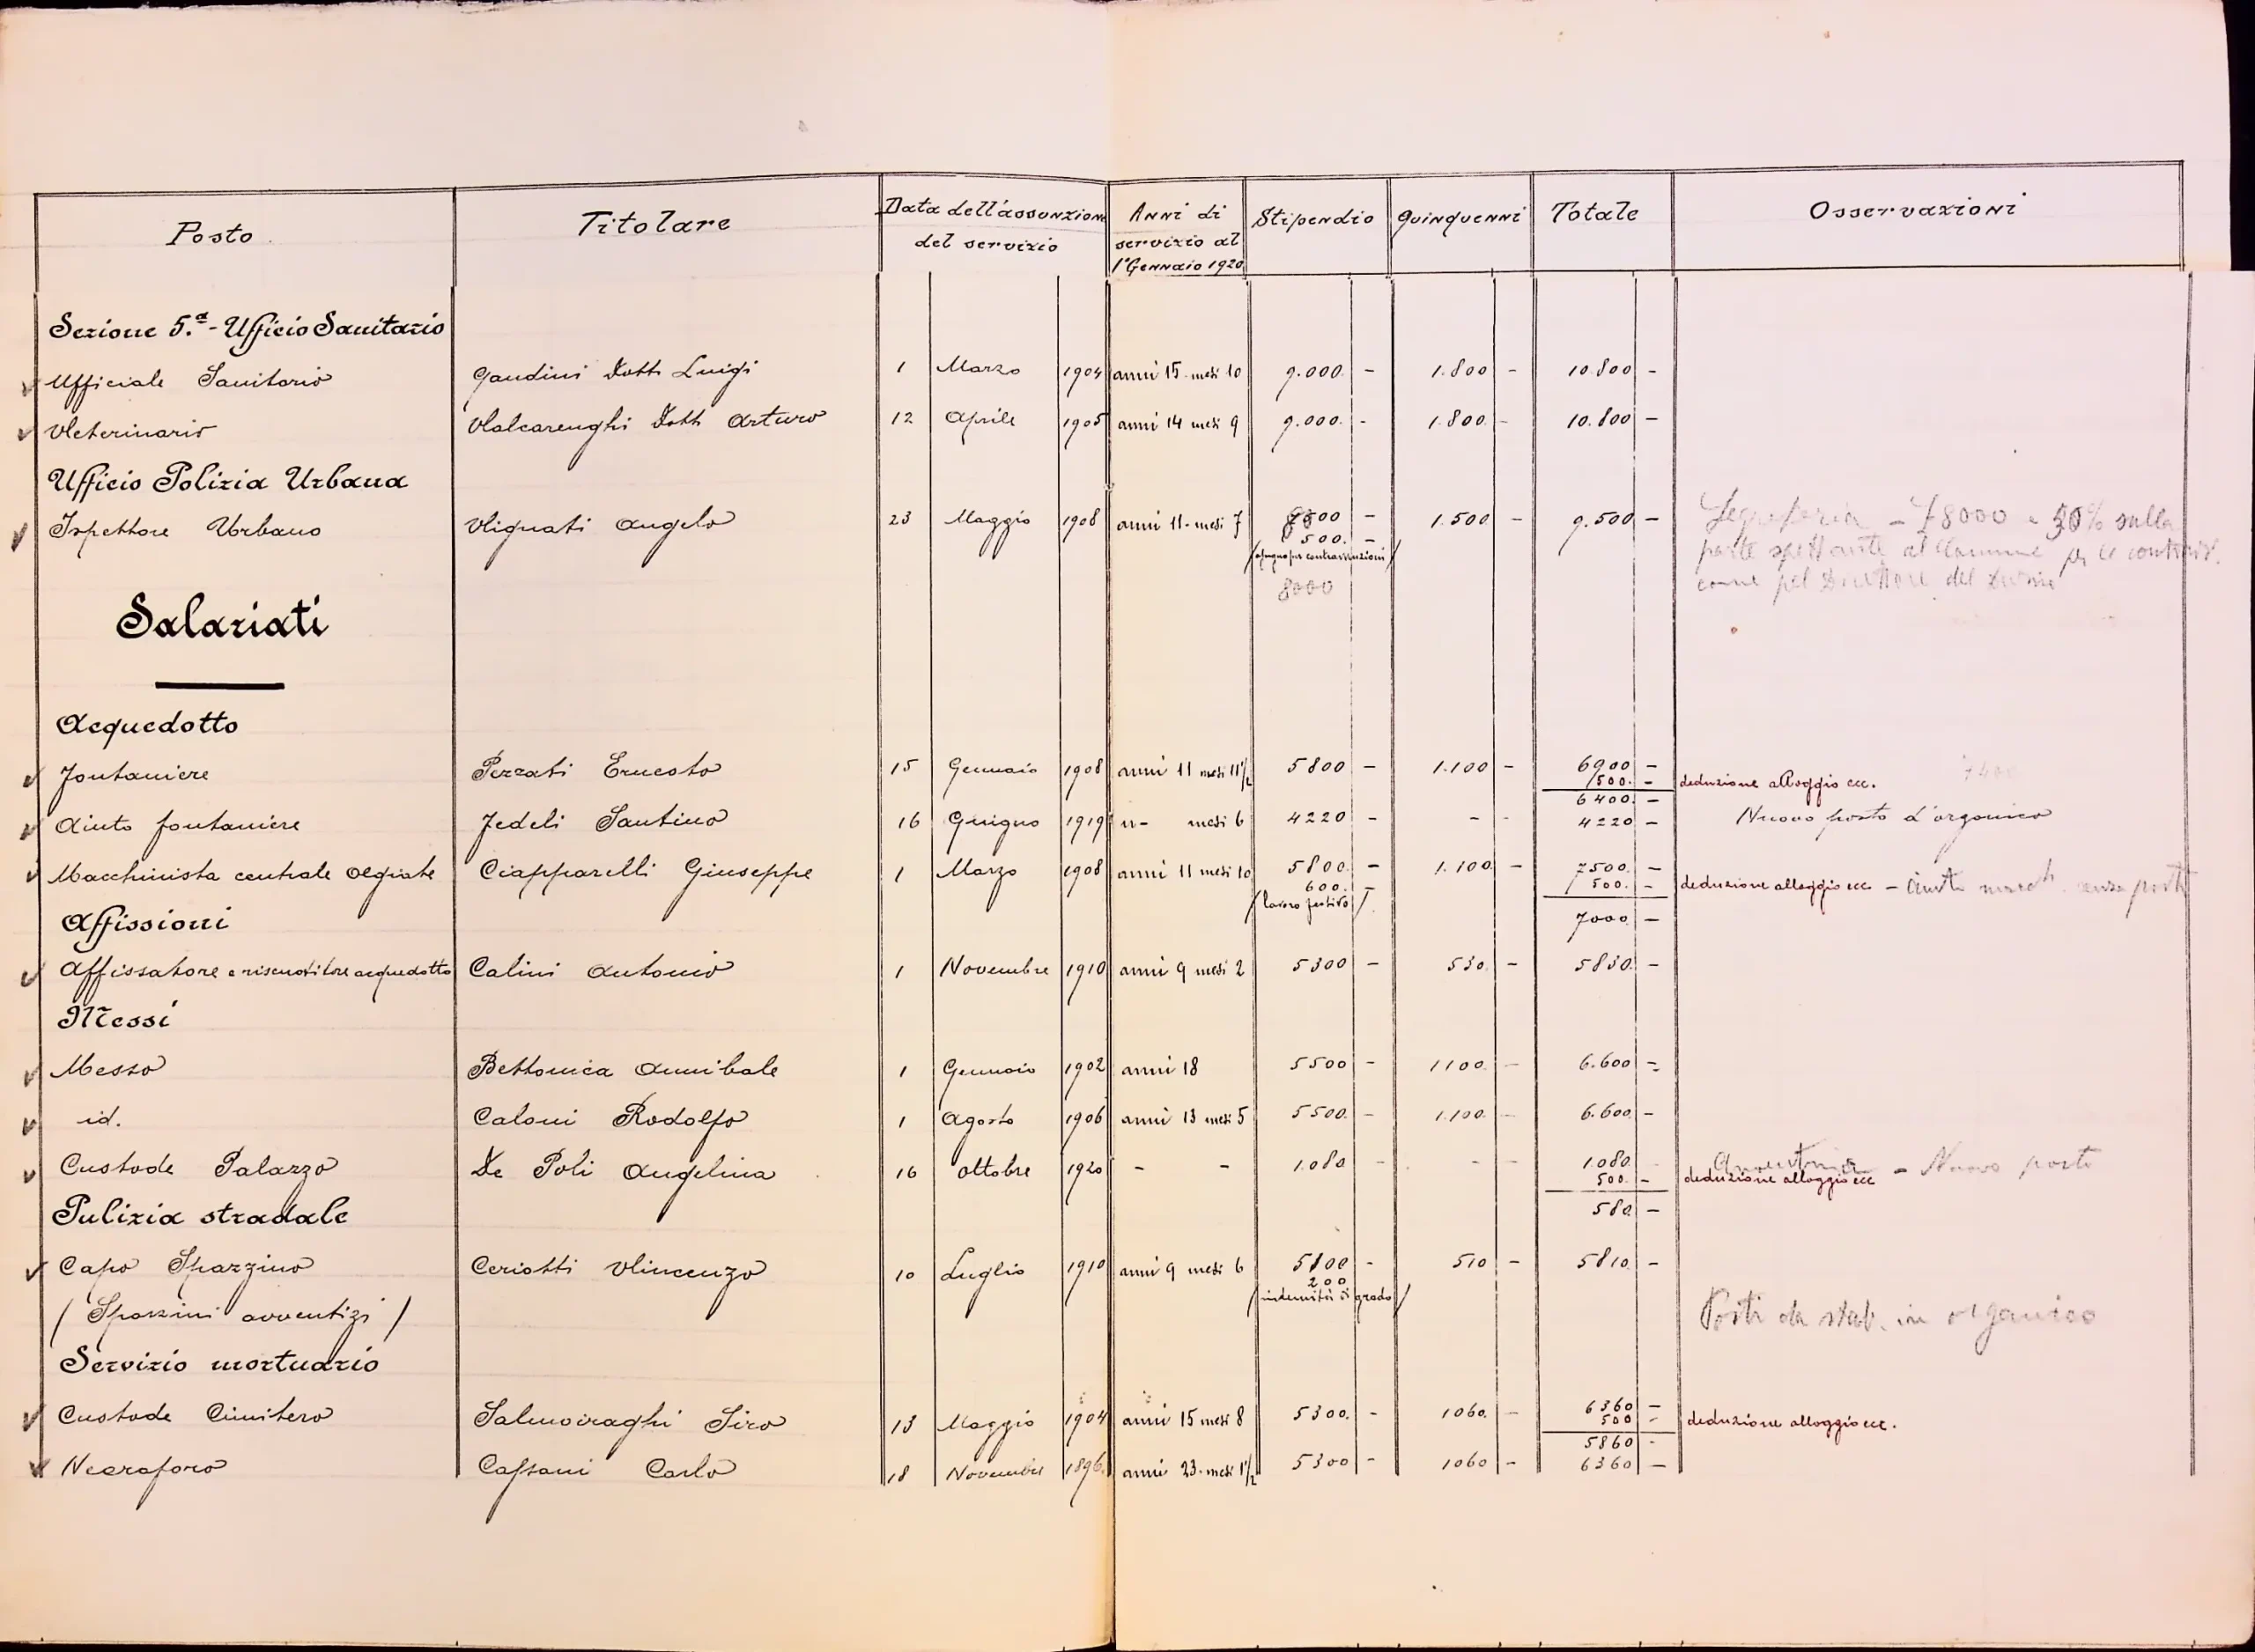 Posto Titolare Data dell'assunzione del servizio Anni di servizio al 1° Gennaio 1920 Stipendio Quinquenni Totale Osservazioni
Sezione 5.a - Ufficio Sanitario
Ufficiale Sanitario Gaudini Dott. Luigi 1 Marzo 1904 anni 15 - mesi 10 9.000 - 1.800 - 10.800 -
Veterinario Valcarenghi Dott. Arturo 12 Aprile 1905 anni 14 mesi 9 9.000. - 1.800. - 10.800 -
Ufficio Polizia Urbana
Ispettore Urbano Vignati Angelo 23 Maggio 1908 anni 11 - mesi 7 7500 - 1.500 - 9.500 -
500. -
per contravvenzioni)
8000
8000 e 50% sulla
parte spettante al Comune per le
come pel Direttore del Dazio
Salariati
Acquedotto
Fontaniere Pezzati Ernesto 15 Gennaio 1908 anni 11 mesi 11 1/2 5800 - 1.100 - 6900 -
500. - deduzione alloggio ecc.
6400. -
Aiuto fontaniere Fedeli Santino 16 Giugno 1919 mesi 6 4220 - - - 4220 - Nuovo posto d'organico
Macchinista centrale Olgiate Ciapparelli Giuseppe 1 Marzo 1908 anni 11 mesi 10 5800. - 1.100. - 7500. -
600. - 500. - deduzione alloggio ecc. -
(lavoro festivo)
7000 -
Affissioni
Affissatore e riscuotitore acquedotto Calini Antonio 1 Novembre 1910 anni 9 mesi 2 5300 - 530. - 5830. -
Messi
Messo Bettonica Annibale 1 Gennaio 1902 anni 18 5500 - 1100. - 6.600 -
id. Caloni Rodolfo 1 Agosto 1906 anni 13 mesi 5 5500. - 1.100. - 6.600. -
Custode Palazzo De Poli Angelina 16 Ottobre 1920 - - 1.080 - - - 1.080. - Nuovo posto
500. - deduzione alloggio ecc
580. -
Pulizia stradale
Capo Spazzino Ceriotti Vincenzo 10 Luglio 1910 anni 9 mesi 6 5100 - 510 - 5810. -
200
(indennità di grado)
(Spazzini avventizi) Posti da stab. in organico
Servizio mortuario
Custode Cimitero Salmoiraghi Siro 13 Maggio 1904 anni 15 mesi 8 5300. - 1060. - 6360 -
500 - deduzione alloggio ecc.
5860 -
Necroforo Cassani Carlo 18 Novembre 1896. anni 23 - mesi 1 1/2 5300 - 1060 - 6360 -